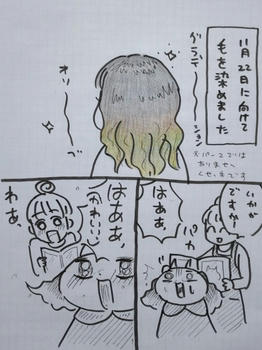 11月22日に向けて
毛を染めました
グラデーション
オリーブ
※パーマではありません
くせ毛です
いかが
ですかー
パカ
はぁぁ。
はぁぁ、
かわいい
わぁ。